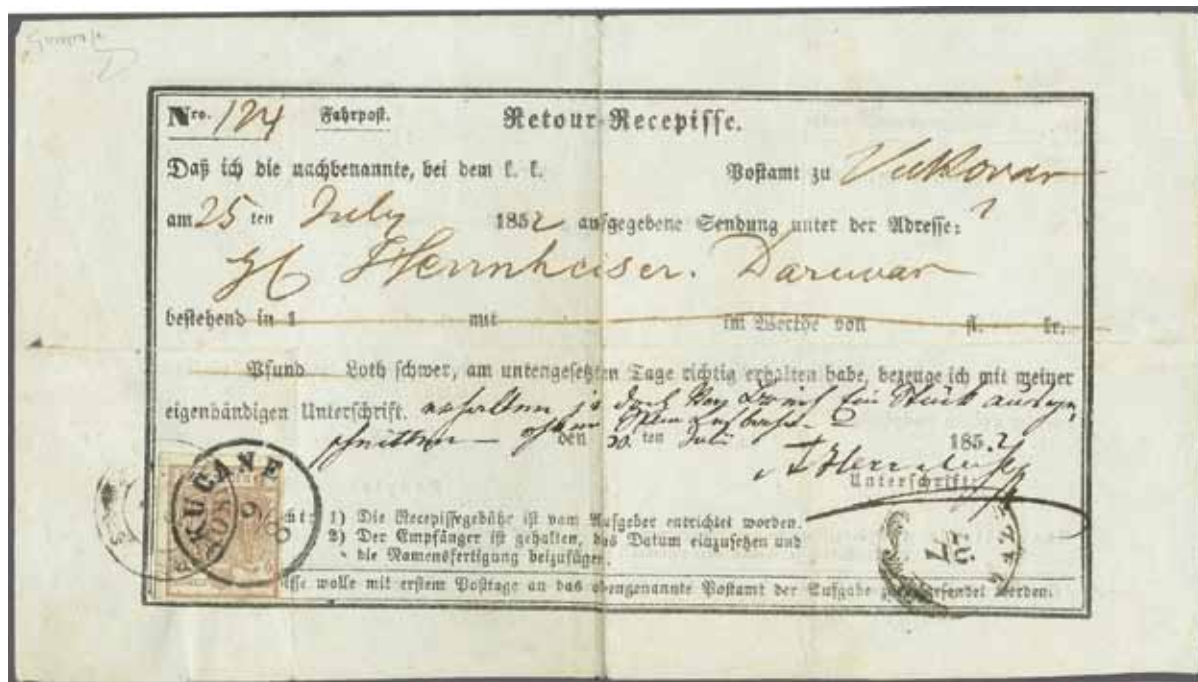 Nro. 124 Fahrpost. Retour-Recepisse.
Daß ich die nachbenannte, bei dem k. k. Postamt zu Vukovar
am 25 ten July 1852 aufgegebene Sendung unter der Adresse:
Herrnheiser. Daruvar
bestehend in 1 mit im Werthe von fl. kr.
Pfund Loth schwer, am untengesetzten Tage richtig erhalten habe, bezeuge ich mit meiner
eigenhändigen Unterschrift. erhalten ein Stück
den 30. ten Juli 1852
Unterschrift:
KUCANE
1) Die Recepissegebühr ist vom Aufgeber entrichtet worden.
2) Der Empfänger ist gehalten, das Datum einzusetzen und
die Namensfertigung beizufügen.
wolle mit erstem Posttage an das obengenannte Postamt der Aufgabe werden.